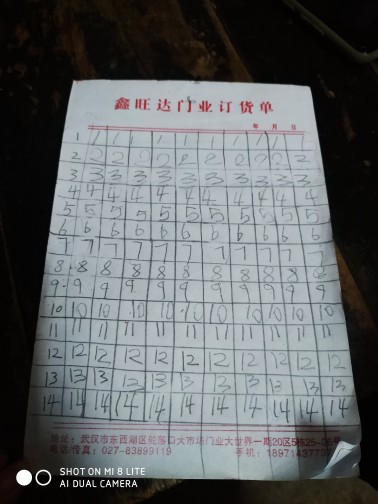 鑫旺达门业订货单
年 月 日
1 1 1 1 1 1 1 1 1 1 1
2 2 2 2 2 2 2 2 2 2 2
3 3 3 3 3 3 3 3 3 3 3
4 4 4 4 4 4 4 4 4 4 4
5 5 5 5 5 5 5 5 5 5 5
6 6 6 6 6 6 6 6 6 6 6
7 7 7 7 7 7 7 7 7 7 7
8 8 8 8 8 8 8 8 8 8 8
9 9 9 9 9 9 9 9 9 9 9
10 10 10 10 10 10 10 10 10 10 10
11 11 11 11 11 11 11 11 11 11 11
12 12 12 12 12 12 12 12 12 12 12
13 13 13 13 13 13 13 13 13 13 13
14 14 14 14 14 14 14 14 14 14 14
地址：武汉市东西湖区舵落口大市场门业大世界一期20区5栋25-26号
电话/传真：027-83899119 手机：
SHOT ON MI 8 LITE
AI DUAL CAMERA